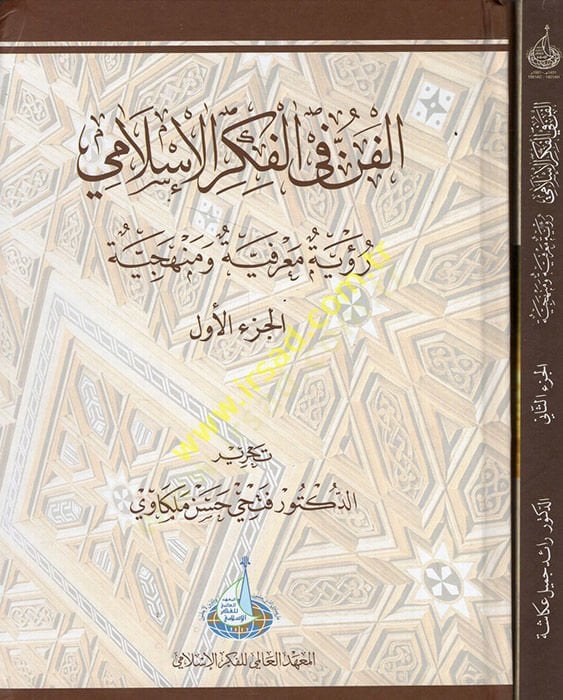 الفن في الفكر الإسلامي
رؤية معرفية ومنهجية
الجزء الأول
تحرير
الدكتور فتحي حسن ملكاوي
المعهد
العالمي
للفكر
الإسلامي
المعهد العالمي للفكر الإسلامي
www.irsad.com.tr
الفن في الفكر الإسلامي
رؤية معرفية ومنهجية
الجزء الثاني
الدكتور رائد جميل عكاشة